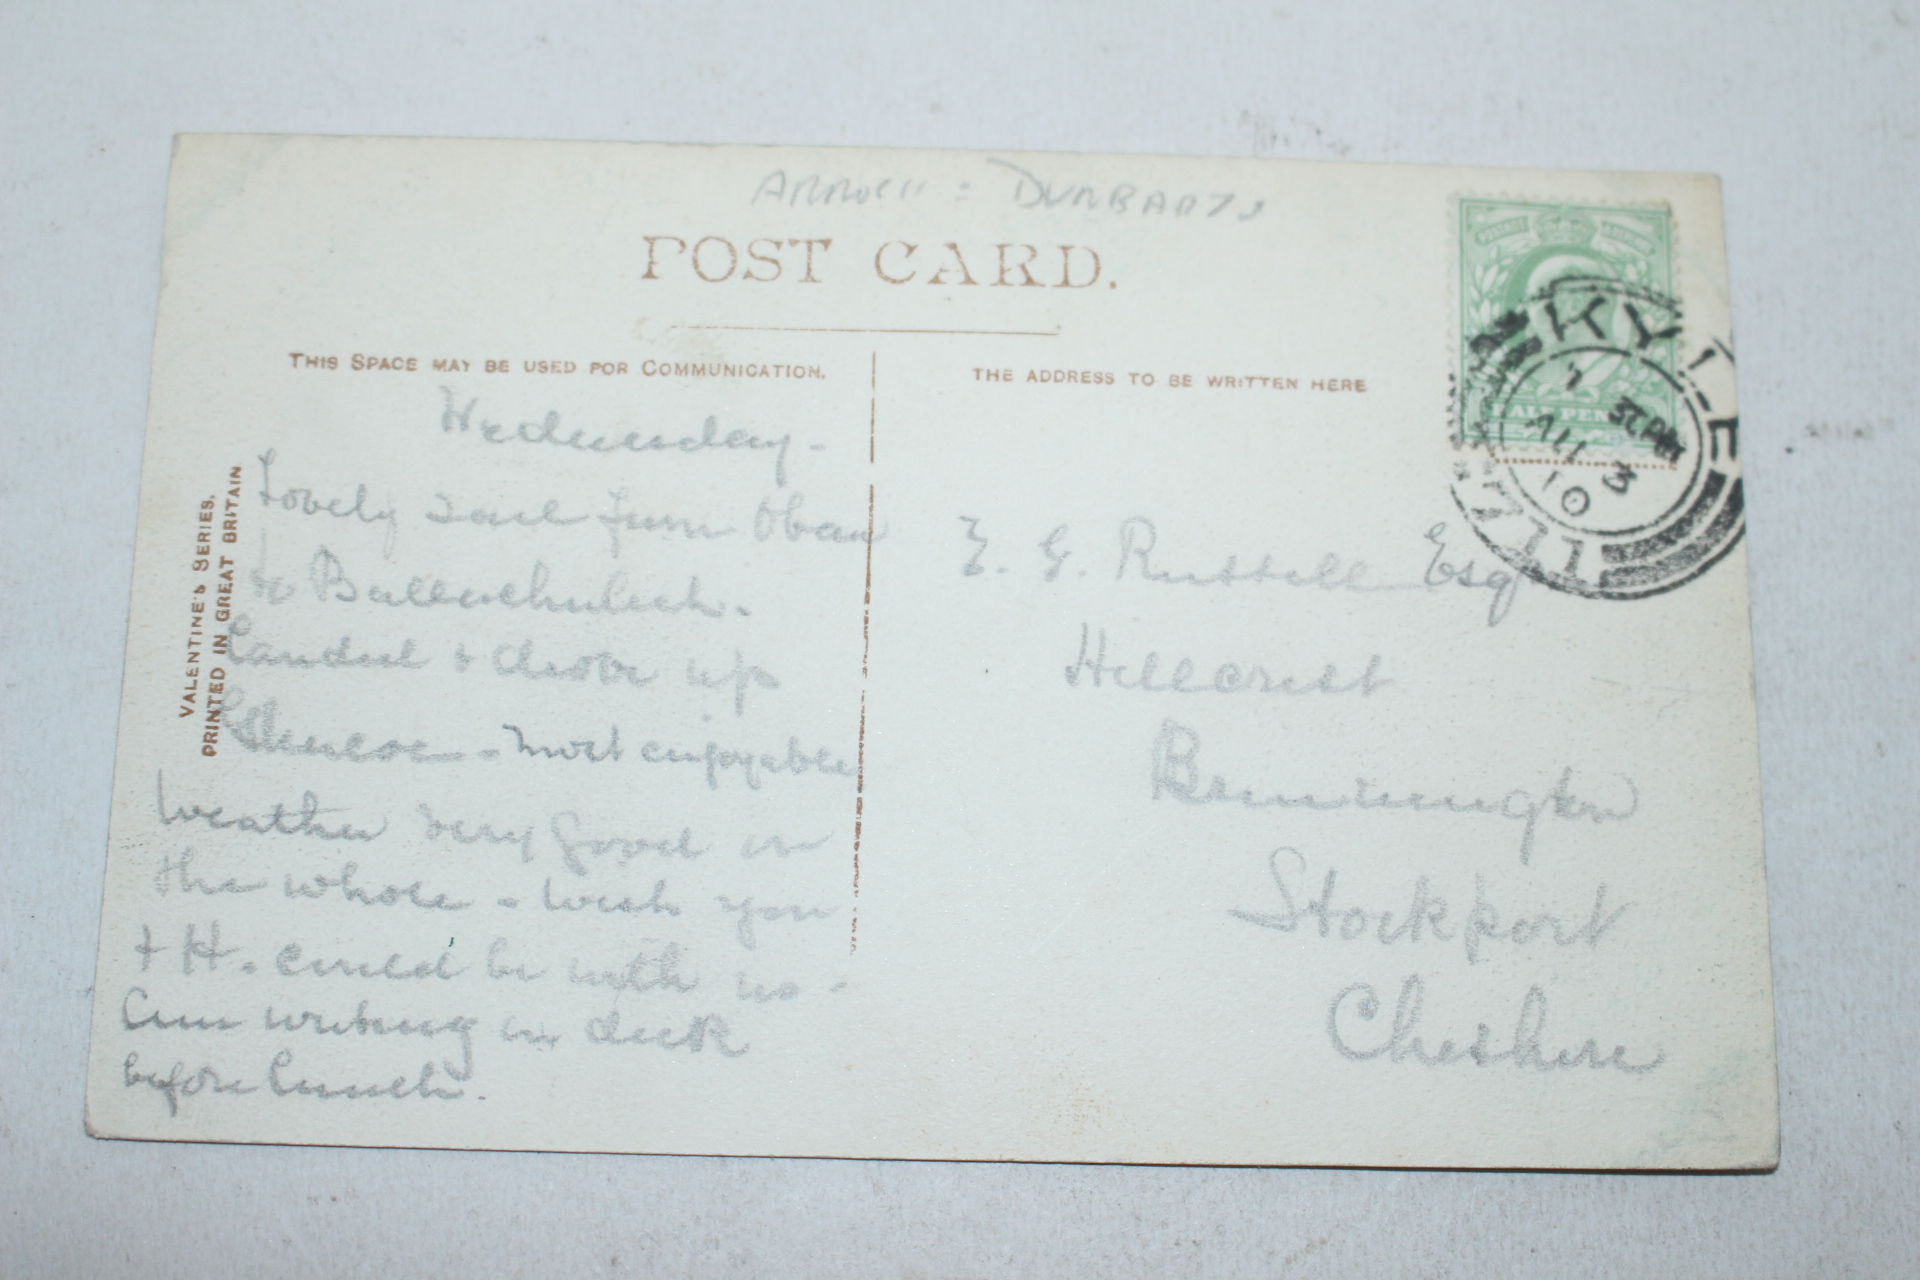 POST CARD.
THIS SPACE MAY BE USED FOR COMMUNICATION.
THE ADDRESS TO BE WRITTEN HERE
VALENTINE'S SERIES.
PRINTED IN GREAT BRITAIN
Wednesday -
Lovely sail from Oban
to Ballachulish.
Landed & drove up
Glencoe - most enjoyable
Weather very good on
the whole - wish you
+ H. could be with us -
Am writing on deck
before lunch.
E. G. Russell Esq
Hillcrest
Brinnington
Stockport
Cheshire
HALF PENNY
KYLE
3 PM
AU 3
10